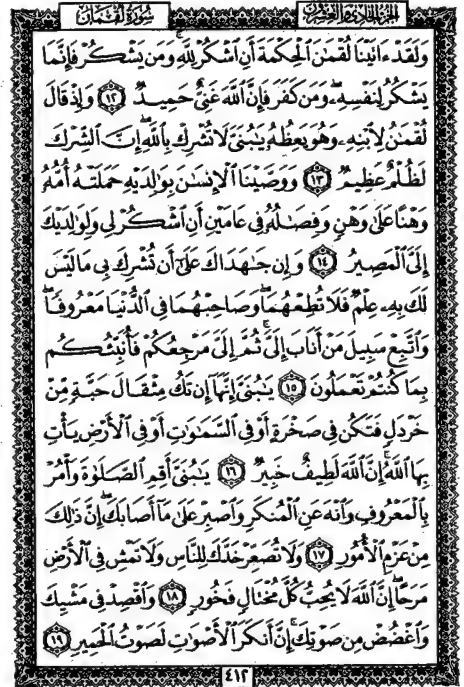 سُورَةُ لُقْمَان
الجزء الحادي والعشرون
وَلَقَدْ ءَاتَيْنَا لُقْمَٰنَ ٱلْحِكْمَةَ أَنِ ٱشْكُرْ لِلَّهِ وَمَن يَشْكُرْ فَإِنَّمَا
يَشْكُرُ لِنَفْسِهِۦ وَمَن كَفَرَ فَإِنَّ ٱللَّهَ غَنِىٌّ حَمِيدٌ ۝١٢ وَإِذْ قَالَ
لُقْمَٰنُ لِٱبْنِهِۦ وَهُوَ يَعِظُهُۥ يَٰبُنَىَّ لَا تُشْرِكْ بِٱللَّهِ إِنَّ ٱلشِّرْكَ
لَظُلْمٌ عَظِيمٌ ۝١٣ وَوَصَّيْنَا ٱلْإِنسَٰنَ بِوَٰلِدَيْهِ حَمَلَتْهُ أُمُّهُۥ
وَهْنًا عَلَىٰ وَهْنٍ وَفِصَٰلُهُۥ فِى عَامَيْنِ أَنِ ٱشْكُرْ لِى وَلِوَٰلِدَيْكَ
إِلَىَّ ٱلْمَصِيرُ ۝١٤ وَإِن جَٰهَدَاكَ عَلَىٰٓ أَن تُشْرِكَ بِى مَا لَيْسَ
لَكَ بِهِۦ عِلْمٌ فَلَا تُطِعْهُمَا وَصَاحِبْهُمَا فِى ٱلدُّنْيَا مَعْرُوفًا
وَٱتَّبِعْ سَبِيلَ مَنْ أَنَابَ إِلَىَّ ثُمَّ إِلَىَّ مَرْجِعُكُمْ فَأُنَبِّئُكُم
بِمَا كُنتُمْ تَعْمَلُونَ ۝١٥ يَٰبُنَىَّ إِنَّهَآ إِن تَكُ مِثْقَالَ حَبَّةٍ مِّنْ
خَرْدَلٍ فَتَكُن فِى صَخْرَةٍ أَوْ فِى ٱلسَّمَٰوَٰتِ أَوْ فِى ٱلْأَرْضِ يَأْتِ
بِهَا ٱللَّهُ إِنَّ ٱللَّهَ لَطِيفٌ خَبِيرٌ ۝١٦ يَٰبُنَىَّ أَقِمِ ٱلصَّلَوٰةَ وَأْمُرْ
بِٱلْمَعْرُوفِ وَٱنْهَ عَنِ ٱلْمُنكَرِ وَٱصْبِرْ عَلَىٰ مَآ أَصَابَكَ إِنَّ ذَٰلِكَ
مِنْ عَزْمِ ٱلْأُمُورِ ۝١٧ وَلَا تُصَعِّرْ خَدَّكَ لِلنَّاسِ وَلَا تَمْشِ فِى ٱلْأَرْضِ
مَرَحًا إِنَّ ٱللَّهَ لَا يُحِبُّ كُلَّ مُخْتَالٍ فَخُورٍ ۝١٨ وَٱقْصِدْ فِى مَشْيِكَ
وَٱغْضُضْ مِن صَوْتِكَ إِنَّ أَنكَرَ ٱلْأَصْوَٰتِ لَصَوْتُ ٱلْحَمِيرِ ۝١٩
٤١٢